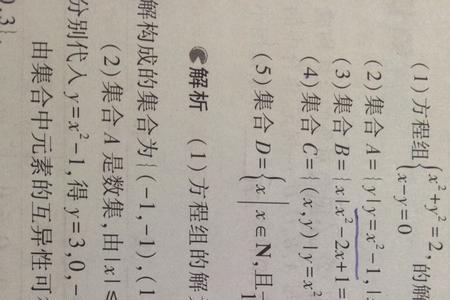 (1)方程组{x²+y²=2, x-y=0 的解
(2)集合 A={y|y=x²-1,|
(3)集合 B={x|x²-2x+1=
(4)集合 C={(x,y)|y=x²
(5)集合 D={x|x∈N,且
解析 (1)方程组的解
解构成的集合为{(-1,-1),(1
(2)集合 A 是数集,由|x|≤
分别代入 y=x²-1,得 y=3,0,-
由集合中元素的互异性可
0,3}.